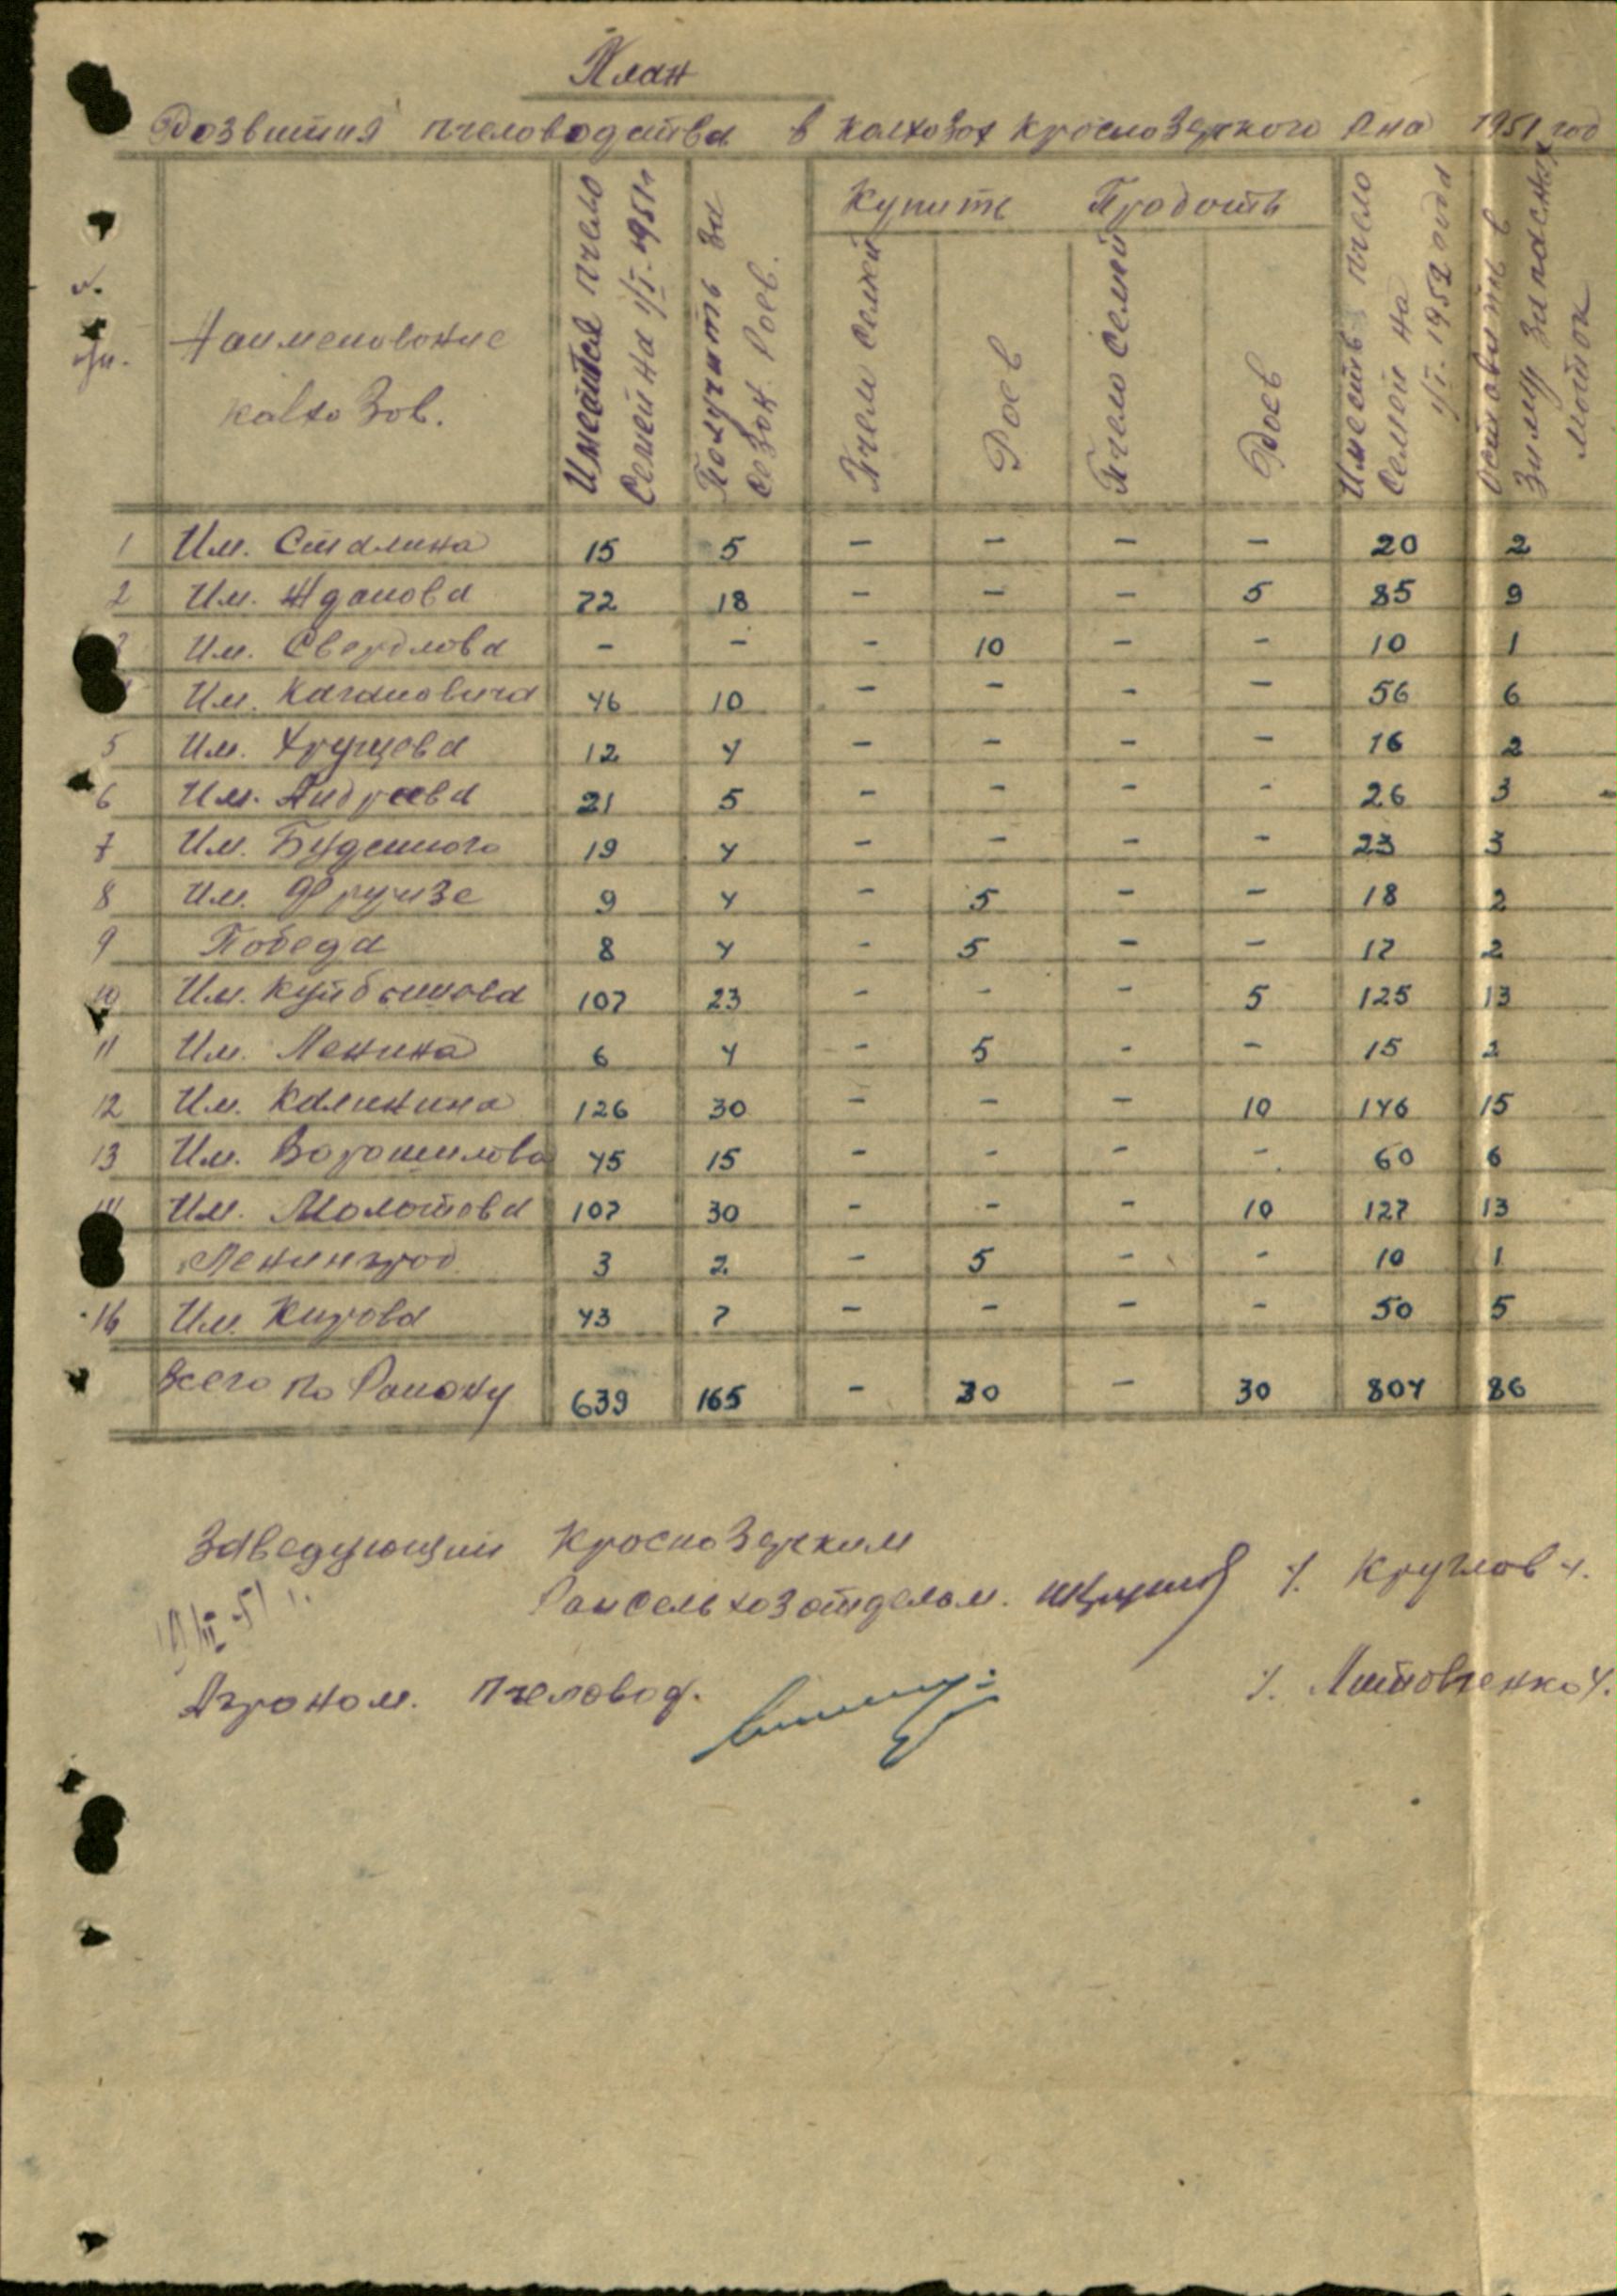 План
Розвития пчеловодства в колхозах Краснозерского р-на 1951 год
Наименование
колхозов.
Имеится пчело
Семей на 1/I-1951г
Получить за
сезон. Роев.
Купить Продать
Пчело семей
Роев
Пчело семей
Роев
Иметь пчело
Семей на
1/I. 1952 года
Оставить в
Зиму запасных
маток
1 Им. Сталина 15 5 – – – – 20 2
2 Им. Жданова 72 18 – – – 5 85 9
Им. Свердлова – – – 10 – – 10 1
Им. Кагановича 46 10 – – – – 56 6
5 Им. Хрущова 12 4 – – – – 16 2
6 Им. Андреева 21 5 – – – – 26 3
7 Им. Буденного 19 4 – – – – 23 3
8 Им. Фрунзе 9 4 – 5 – – 18 2
9 Победа 8 4 – 5 – – 17 2
10 Им. Куйбышева 107 23 – – – 5 125 13
11 Им. Ленина 6 4 – 5 – – 15 2
12 Им. Калинина 126 30 – – – 10 146 15
13 Им. Ворошилова 45 15 – – – – 60 6
14 Им. Молотова 107 30 – – – 10 127 13
Ленинград 3 2 – 5 – – 10 1
16 Им. Кирова 43 7 – – – – 50 5
Всего по Району 639 165 – 30 – 30 804 86
Заведующий Краснозерским
Райсельхозотделом. /. Круглов /.
Агроном. пчеловод. /. Литовченко /.